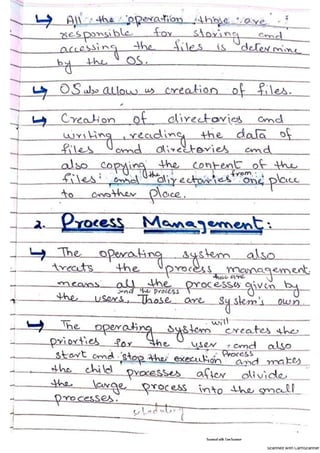 All the operation those are
responsible for storing and
accessing the files is determine
by the OS.
OS also allow us creation of files.
Creation of directories and
writing, reading the data of
files and directories and
also copying the content of the
files and the directories from one place
to another place.
2. Process Management:
The operating system also
treats the process management
means all the process given by
the users. and the process Those are system's own.
The operating system will creates the
priorties for the user and also
start and stop the execution Process and makes
the child processes after divide
the large process into the small
processes.
scheduling
Scanned with CamScanner
Scanned with CamScanner